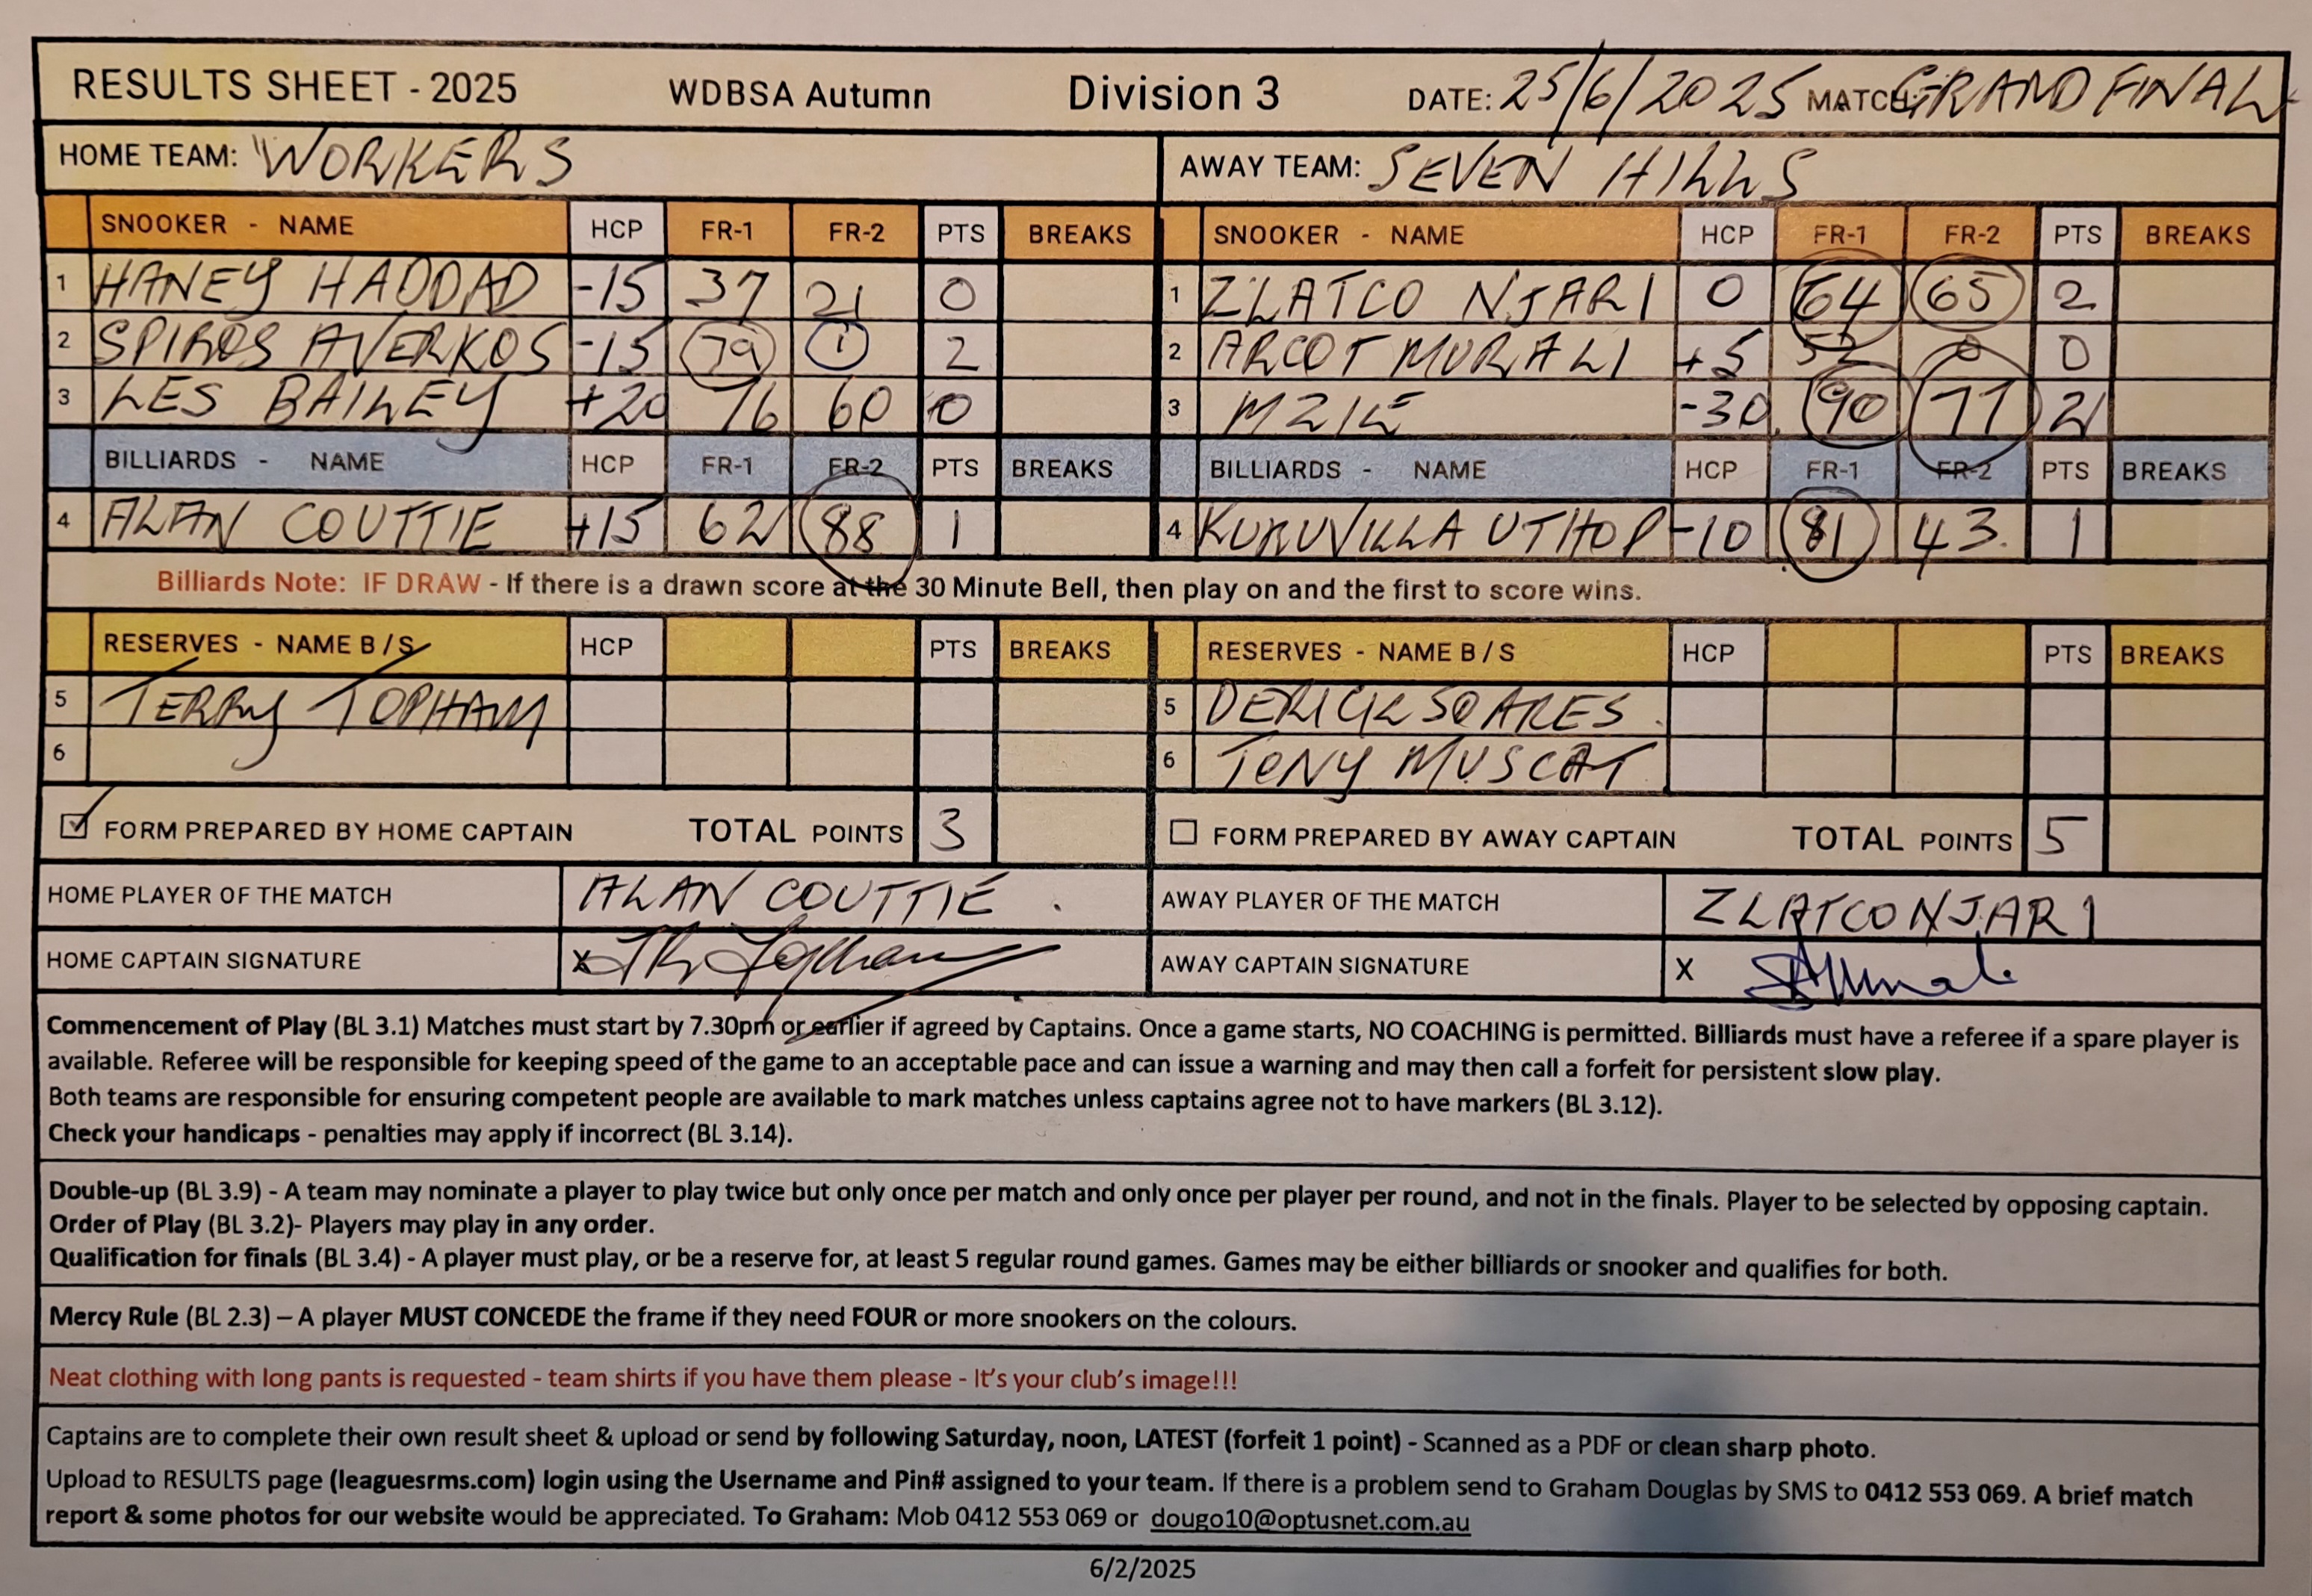 RESULTS SHEET - 2025 WDBSA Autumn Division 3 DATE: 25/6/2025 MATCH: GRAND FINAL
HOME TEAM: WORKERS AWAY TEAM: SEVEN HILLS
SNOOKER - NAME HCP FR-1 FR-2 PTS BREAKS SNOOKER - NAME HCP FR-1 FR-2 PTS BREAKS
1 HANEY HADDAD -15 37 21 0 1 ZLATCO NJARI 0 64 65 2
2 SPIROS AVERKOS -15 79 1 2 2 ARCOT MURALI +5 52 0 0
3 LES BAILEY +20 76 60 0 3 -30 90 77 2
BILLIARDS - NAME HCP FR-1 FR-2 PTS BREAKS BILLIARDS - NAME HCP FR-1 FR-2 PTS BREAKS
4 ALAN COUTTIE +15 62 88 1 4 KURUVILLA UTHOP -10 81 43 1
Billiards Note: IF DRAW - If there is a drawn score at the 30 Minute Bell, then play on and the first to score wins.
RESERVES - NAME B / S HCP PTS BREAKS RESERVES - NAME B / S HCP PTS BREAKS
5 TERRY TOPHAM 5 DERICK SOARES
6 6 TONY MUSCAT
FORM PREPARED BY HOME CAPTAIN TOTAL POINTS 3 FORM PREPARED BY AWAY CAPTAIN TOTAL POINTS 5
HOME PLAYER OF THE MATCH ALAN COUTTIE AWAY PLAYER OF THE MATCH ZLATCO NJARI
HOME CAPTAIN SIGNATURE X AWAY CAPTAIN SIGNATURE X
Commencement of Play (BL 3.1) Matches must start by 7.30pm or earlier if agreed by Captains. Once a game starts, NO COACHING is permitted. Billiards must have a referee if a spare player is
available. Referee will be responsible for keeping speed of the game to an acceptable pace and can issue a warning and may then call a forfeit for persistent slow play.
Both teams are responsible for ensuring competent people are available to mark matches unless captains agree not to have markers (BL 3.12).
Check your handicaps - penalties may apply if incorrect (BL 3.14).
Double-up (BL 3.9) - A team may nominate a player to play twice but only once per match and only once per player per round, and not in the finals. Player to be selected by opposing captain.
Order of Play (BL 3.2)- Players may play in any order.
Qualification for finals (BL 3.4) - A player must play, or be a reserve for, at least 5 regular round games. Games may be either billiards or snooker and qualifies for both.
Mercy Rule (BL 2.3) – A player MUST CONCEDE the frame if they need FOUR or more snookers on the colours.
Neat clothing with long pants is requested - team shirts if you have them please - It's your club's image!!!
Captains are to complete their own result sheet & upload or send by following Saturday, noon, LATEST (forfeit 1 point) - Scanned as a PDF or clean sharp photo.
Upload to RESULTS page (leaguesrms.com) login using the Username and Pin# assigned to your team. If there is a problem send to Graham Douglas by SMS to 0412 553 069. A brief match
report & some photos for our website would be appreciated. To Graham: Mob 0412 553 069 or dougo10@optusnet.com.au
6/2/2025